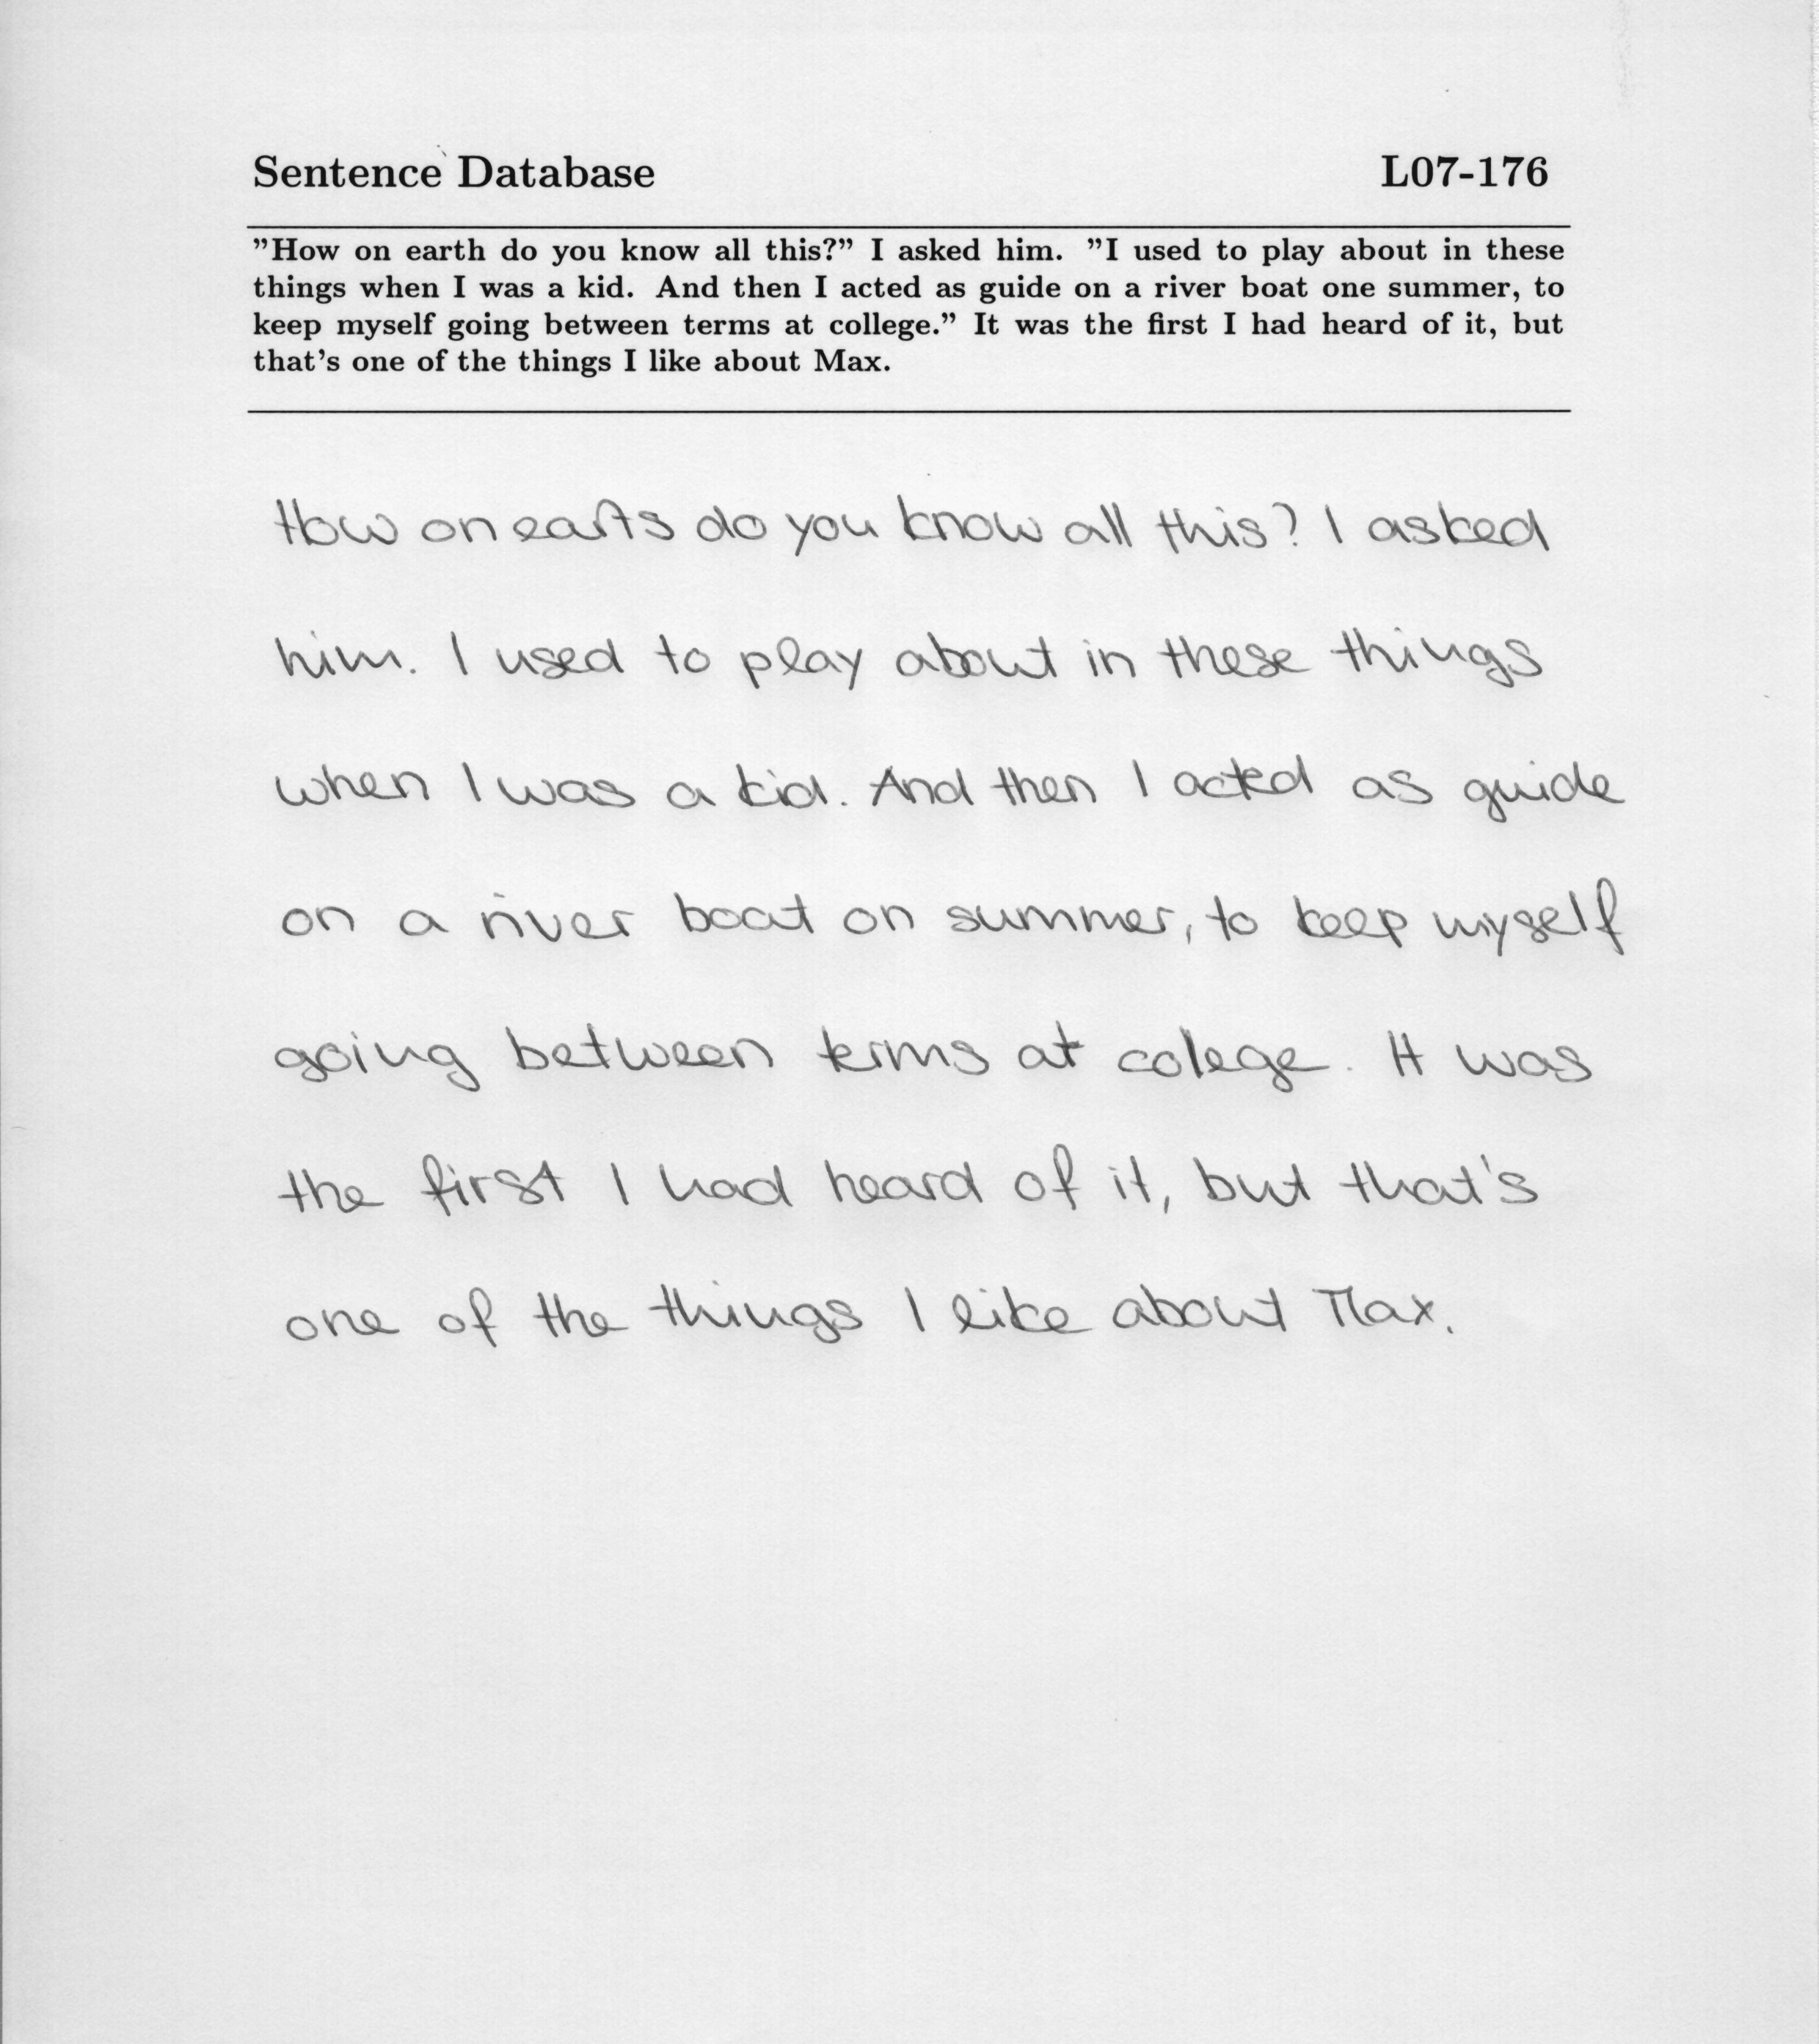 Sentence Database L07-176
”How on earth do you know all this?” I asked him. ”I used to play about in these
things when I was a kid. And then I acted as guide on a river boat one summer, to
keep myself going between terms at college.” It was the first I had heard of it, but
that's one of the things I like about Max.
How on earts do you know all this? I asked
him. I used to play about in these things
when I was a kid. And then I acted as guide
on a river boat on summer, to keep myself
going between terms at colege. It was
the first I had heard of it, but that's
one of the things I like about Max.